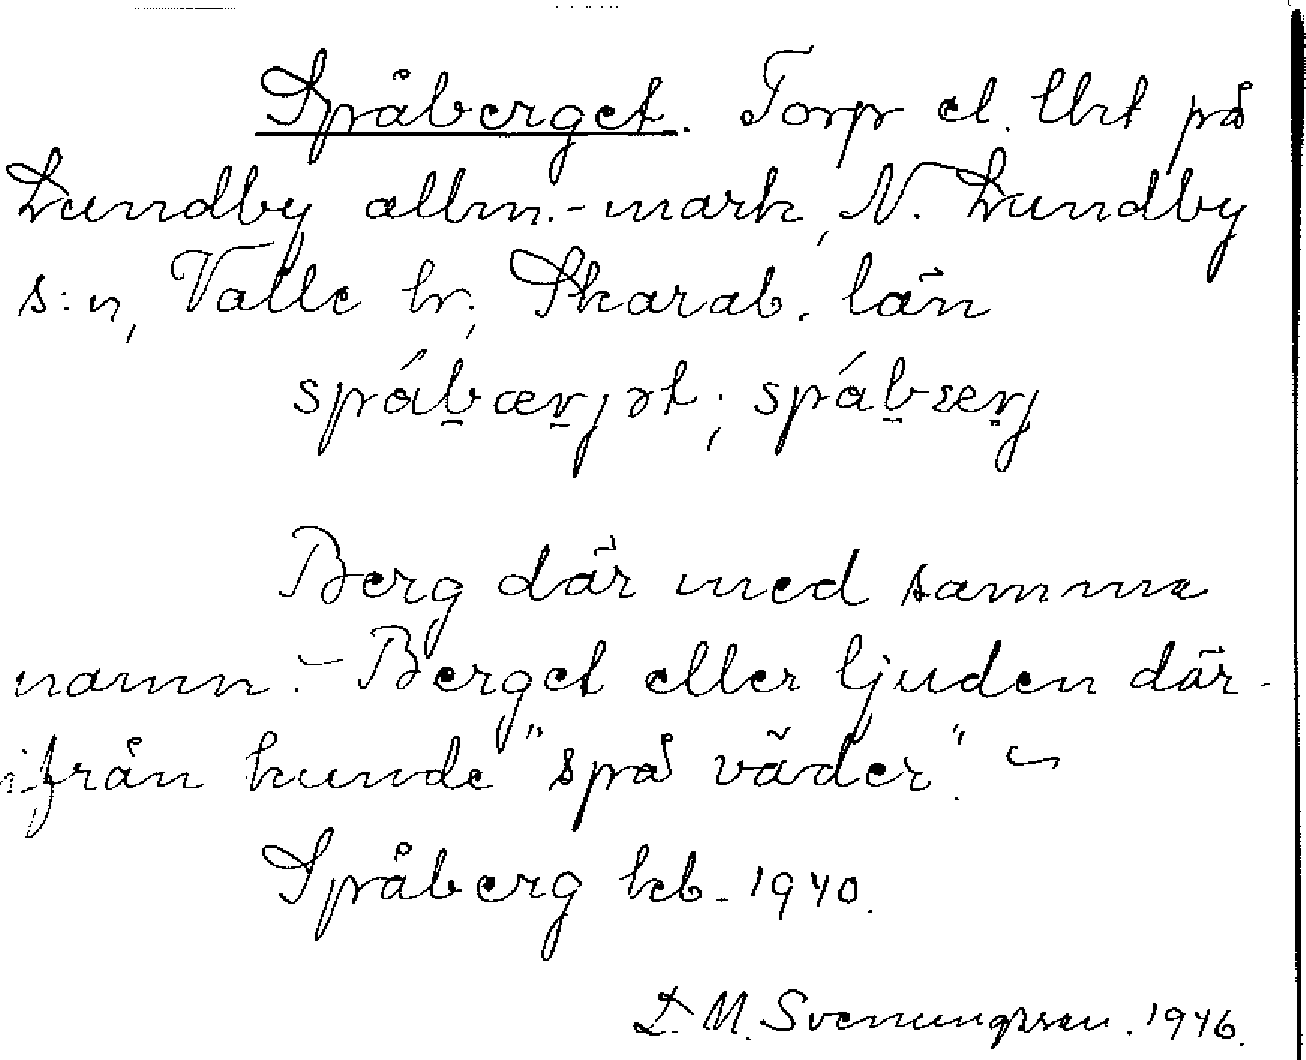 Spåberget. Torp el. lht på
Lundby allm.-mark, N. Lundby
s:n, Valle hr; Skarab. län
spåbærjət; spåbærj
Berg där med samma
namn. – Berget eller ljuden där-
ifrån kunde "spå väder". ~
Spåberg kb. 1940.
L. M. Svenungsson. 1946.